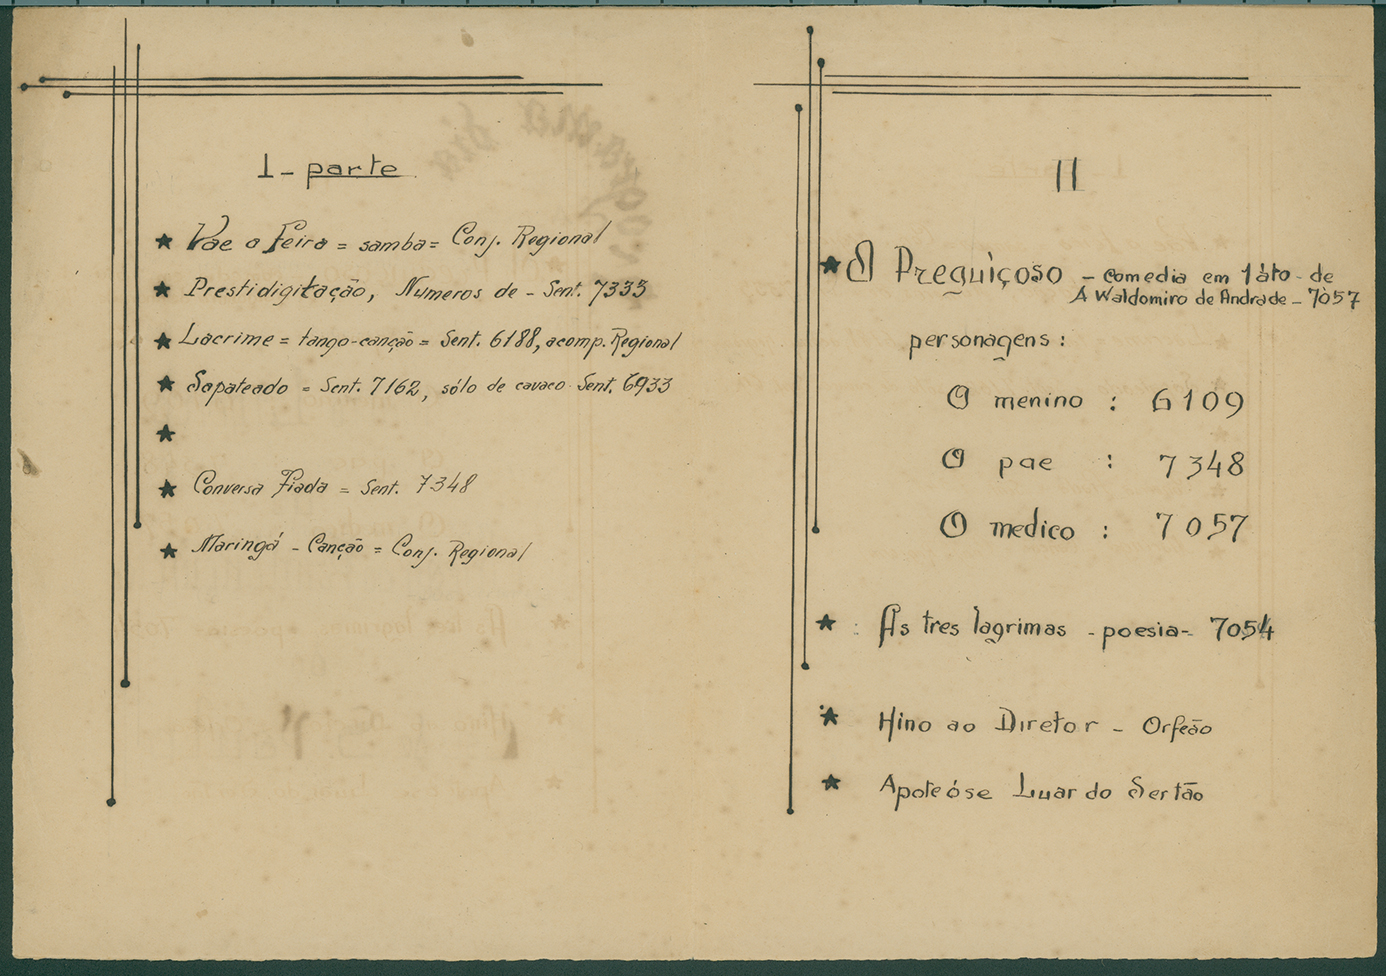 I - parte
★ Vae a Feira = samba = Conj. Regional
★ Prestidigitação, Numeros de - Sent. 7335
★ Lacrime = tango-canção = Sent. 6188, acomp. Regional
★ Sapateado = Sent. 7162, sólo de cavaco Sent. 6933
★
★ Conversa Fiada = Sent. 7348
★ Maringá - Canção = Conj. Regional
II
★ O Preguiçoso - comedia em 1 áto - de
A Waldomiro de Andrade - 7057
personagens :
O menino : 6109
O pae : 7348
O medico : 7057
★ As tres lagrimas - poesia - 7054
★ Hino ao Diretor - Orfeão
★ Apoteóse Luar do Sertão